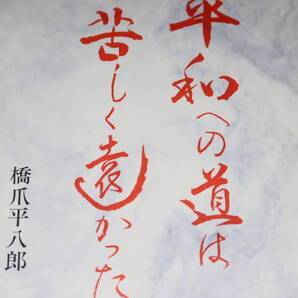 平和への道は
苦しく遠かった
橋爪平八郎